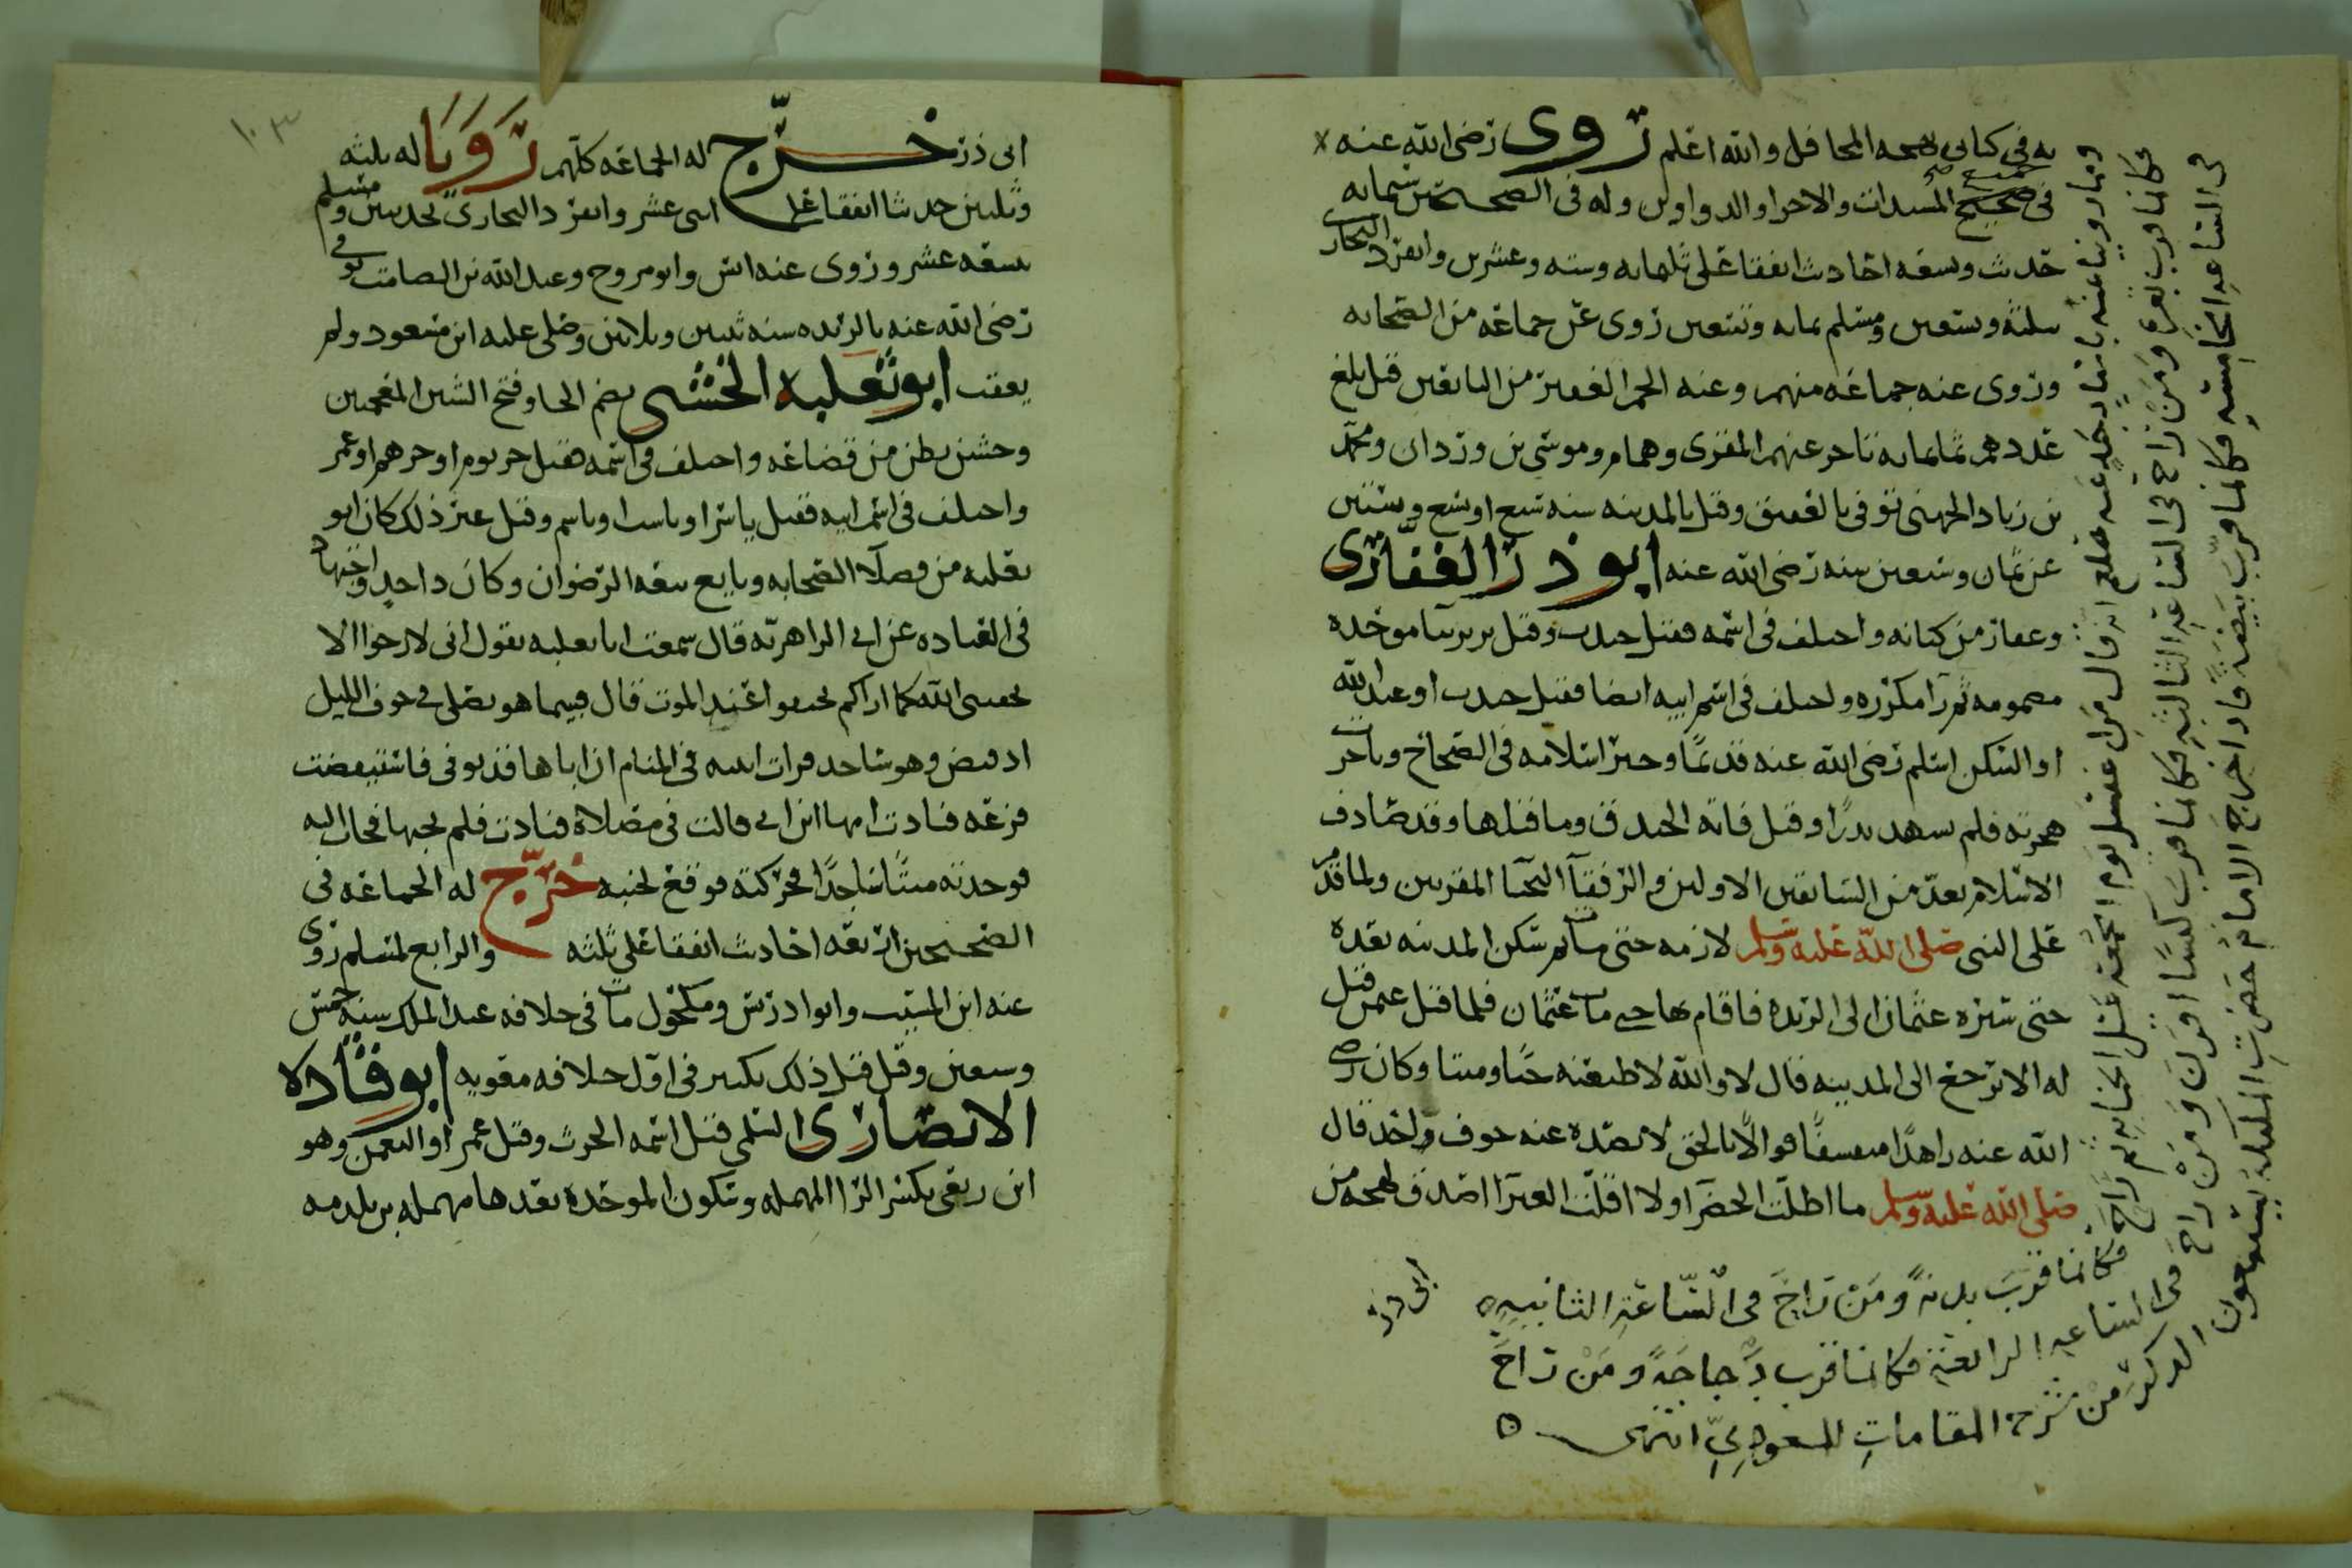 به في كتابي بهجه المحافل والله اعلم روى رضي الله عنه
في جميع المسندات والاجزا والدواوين وله في الصحيحين ستمايه
حديث وتسعه احاديث اتفقا على ثلثمايه وسته وعشرين وانفرد البخارى
بثلثة وتسعين ومسلم بمايه وتسعين روى عن جماعه من الصحابه
وروى عنه جماعه منهم وعنه الجم الغفير من التابعين قيل بلغ
عددهم ثمانمايه تاخر عنهم المقبرى وهمام وموسى بن وردان ومحمد
بن زياد الجهني توفي بالعقيق وقيل بالمدينه سنه سبع او تسع وستين
عن ثمان وسبعين سنه رضي الله عنه ابو ذر الغفارى
وغفار من كنانه واختلف في اسمه فقيل جندب وقيل برير بباً موحده
مضمومه ثم رآ مكرره واختلف في اسم ابيه ايضا فقيل جندب او عبد الله
او السكن اسلم رضي الله عنه قديمًا وخبر اسلامه في الصحاح وتاخرت
هجرته فلم يشهد بدرًا وقيل فاته الخندق وما قبلها وقد صادف
الاسلام يعدّ من السابقين الاولين والرفقآ النجبا المقربين ولما قدم
على النبي صلى الله عليه وسلم لازمه حتى مات ثم سكن المدينه بعده
حتى سيره عثمان الى الربذه فاقام بها حتى مات عثمان فلما قتل عثمن قيل
له الا ترجع الى المدينه قال لا والله لا طيعنه حيًا وميتا وكان رضي
الله عنه زاهدًا متقشفًا قوالًا بالحق لا يصده عنه خوف ولحد قال
صلى الله عليه وسلم ما اظلت الخضرآ ولا اقلت الغبرآ اصدق لهجه من
ابي ذر
ومما رويناه عنه باسناد حد عنه صلعم انه قال من اغتسل يوم الجمعة غسل الجنابة ثم راح
فكانما قرب بدنه ً ومَنْ رَاحَ في السّاعَةِ الثانيهِ
فكانما قرب بقرة وَمَنْ رَاحَ في الساعَةِ الثالثهِ فكانما قربَ كبشًا اقرنَ وَمَنْ راحَ
في الساعهِ الرابعَهِ فكانما قرب دَجاجَةً ومَنْ راحَ
في الساعهِ الخامسَهِ فكانما قربَ بيضةً فاذا خرجَ الامامُ حَضَرتِ الملائكة يستمعون
الذكرَ من شرح المقاماتِ للمسعوديّ انتهى
١٠٣
ابي ذر خرّج له الجماعه كلهم رَوَيَا له ثلثه
وثلثين حديثا اتفقا على اثني عشر وانفرد البخارى بحديثين ومسلم
بسبعه عشر وروى عنه انس وابو مروح وعبد الله بن الصامت توفي
رضي الله عنه بالربذه سنه ثنتين وثلاثين وصلى عليه ابن مسعود ولم
يعقب ابو ثعلبه الخشنى بضم الخا وفتح الشين المعجمتين
وخشين بطن من قضاعه واختلف في اسمه فقيل جرثوم او جرهم او عمر
واختلف في اسم ابيه فقيل ياشر او ناشب او باسم وقيل غير ذلك كان ابو
ثعلبه من فضلآ الصحابه وبايع بيعه الرضوان وكان ذا جدٍ واجتهاد
في العباده عن ابي الزاهريّه قال سمعت ابا ثعلبه يقول اني لارجوا الا
يخنقني الله كما اراكم تخنقوا عند الموت قال فبينما هو يصلي في جوف الليل
اذ قبض وهو ساجد فرات ابنته في المنام ان اباها قد توفي فاستيقضت
فزعه فنادت امها اين ابي قالت في مصلاه فنادت فلم يجبها فجات اليه
فوجدته ميتًا ساجدًا فحركته فوقع لجنبه خرّج له الجماعه في
الصحيحين اربعه احاديث اتفقا على ثلثه والرابع لمسلم روى
عنه ابن المسيب وابو ادريس ومكحول مات في خلافه عبد الملك سنه خمس
وسبعين وقيل قبل ذلك بكثير في اول خلافه معويه ابو قتاده
الانصارى السلمي قيل اسمه الحرث وقيل عمر او النعمن وهو
ابن ربعي بكسر الرا المهمله وسكون الموحده بعدها مهمله بن بلدمه